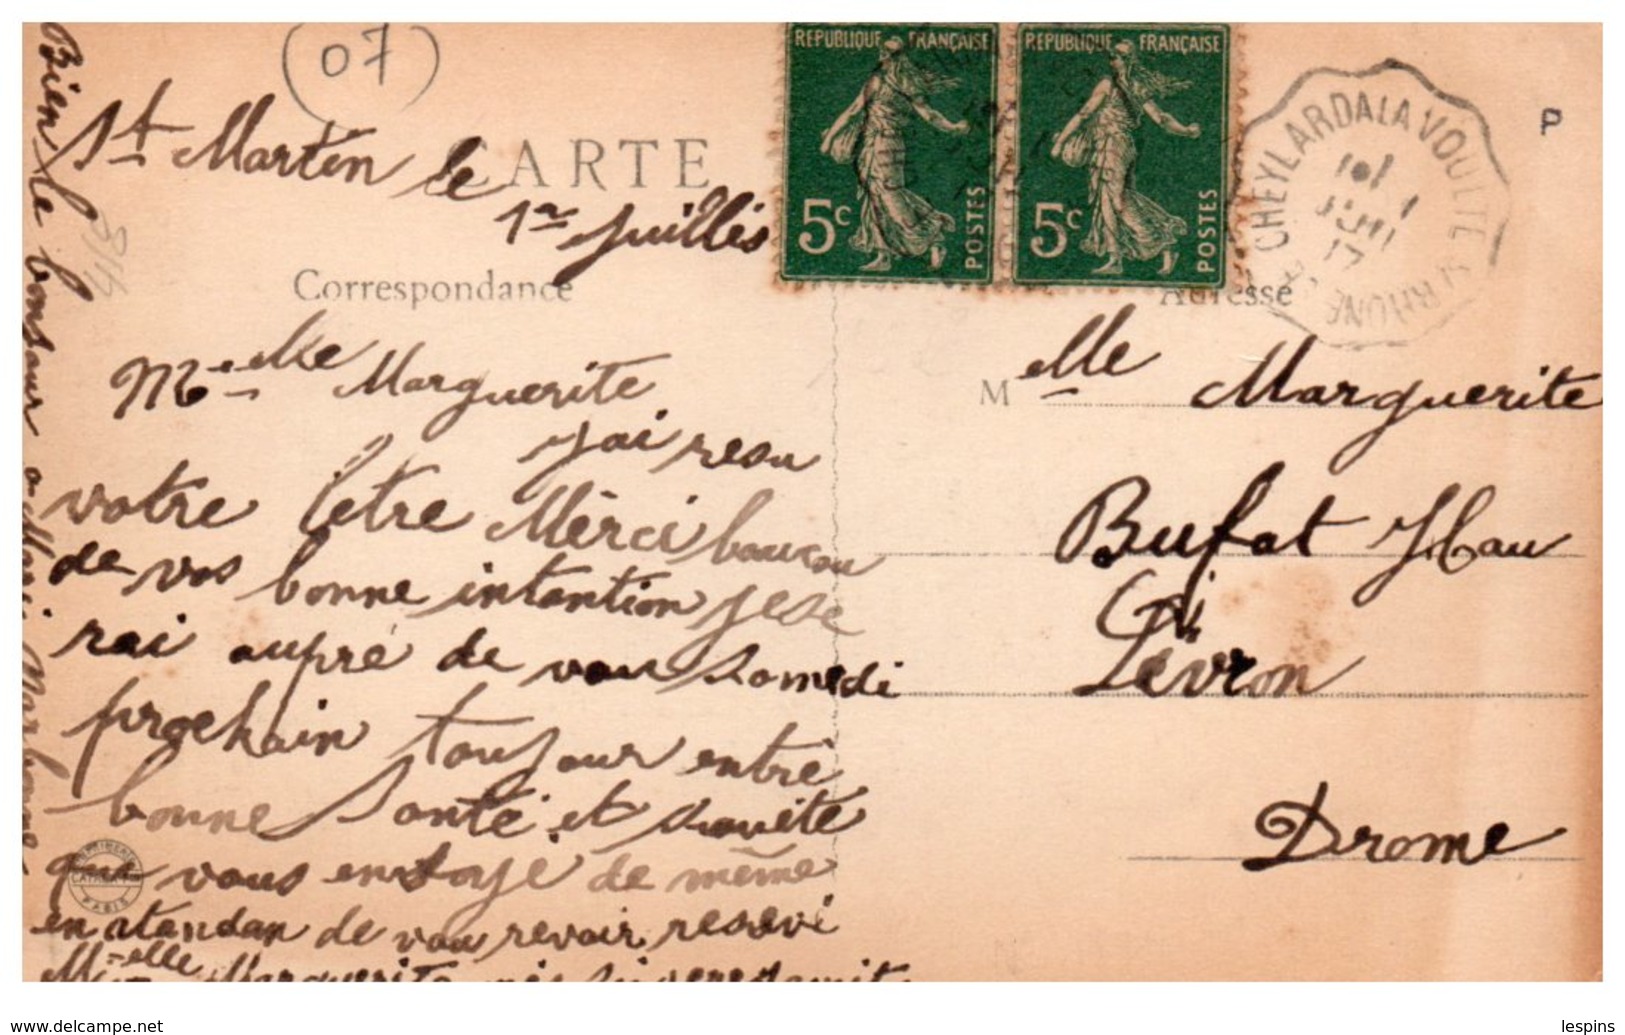 (07)
St Martin le
1er Juillés
CARTE
Correspondance
Adresse
REPUBLIQUE FRANÇAISE
5c
POSTES
REPUBLIQUE FRANÇAISE
5c
POSTES
CHEYLARD A LA VOULTE S RHONE
P
Melle Marguerite
j'ai resu
votre letre Mèrci baucou
de vos bonne intantion je se
rai aupré de vou samedi
prochain toujour entré
bonne Santé et souéte
que vous en soyé de même
en atandan de vou revoir resevi
Melle Marguerite
Bien le bonsour a
M elle Marguerite
Bufat
Lévron
Drome
PARIS
delcampe.net
lespins